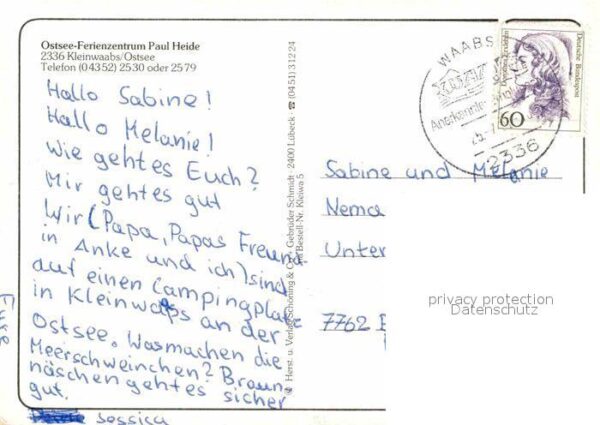 Ostsee-Ferienzentrum Paul Heide
2336 Kleinwaabs/Ostsee
Telefon (0 43 52) 25 30 oder 25 79
Hallo Sabine!
Hallo Melanie!
Wie gehtes Euch?
Mir gehtes gut
Wir (Papa, Papas Freund
in Anke und ich) sind
auf einen Campingplatz
in Kleinwaps an der
Ostsee. Wasmachen die
Meerschweinchen? Braun
näschen gehtes sicher
gut.
Jessica
Eure
Herst. u. Verlag Schöning & Co · Gebrüder Schmidt · 2400 Lübeck · ☎ (04 51) 3 12 24
Bestell-Nr. Kleiwa 5
WAABS
2336
Deutsche Bundespost
60
Sabine und Melanie
Nema
Unter
7762
privacy protection
Datenschutz